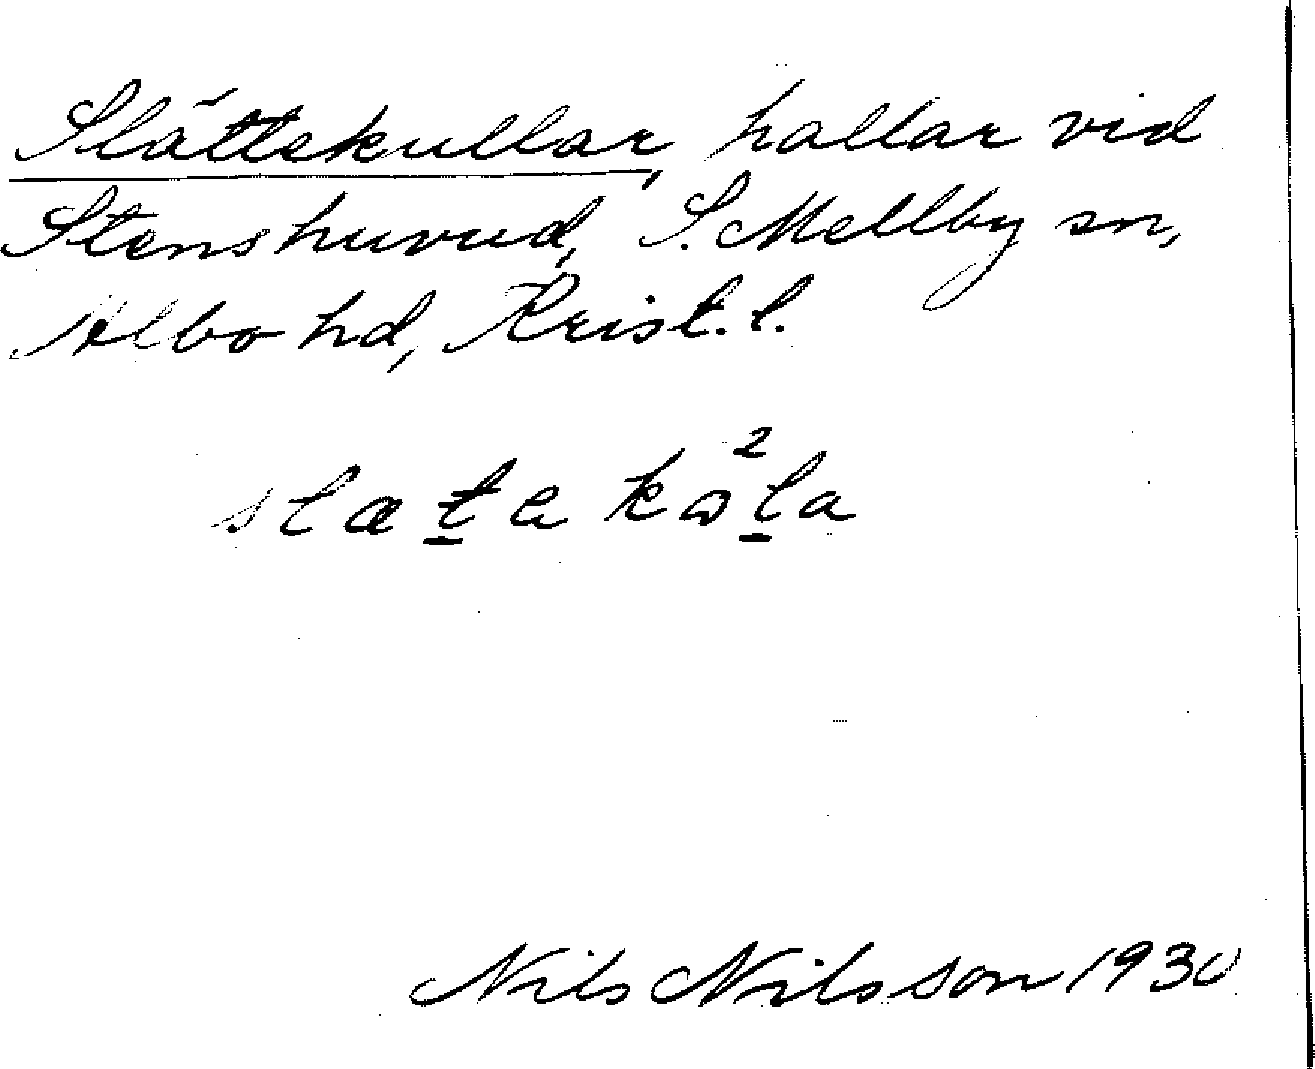 Slättekullar, hallar vid
Stenshuvud, S. Mellby sn,
Albo hd, Krist. l.
slætekω²la
Nils Nilsson 1930